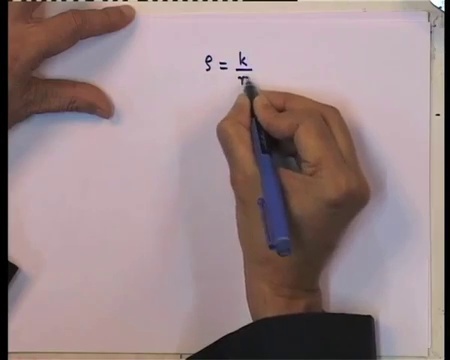 ρ = k/r